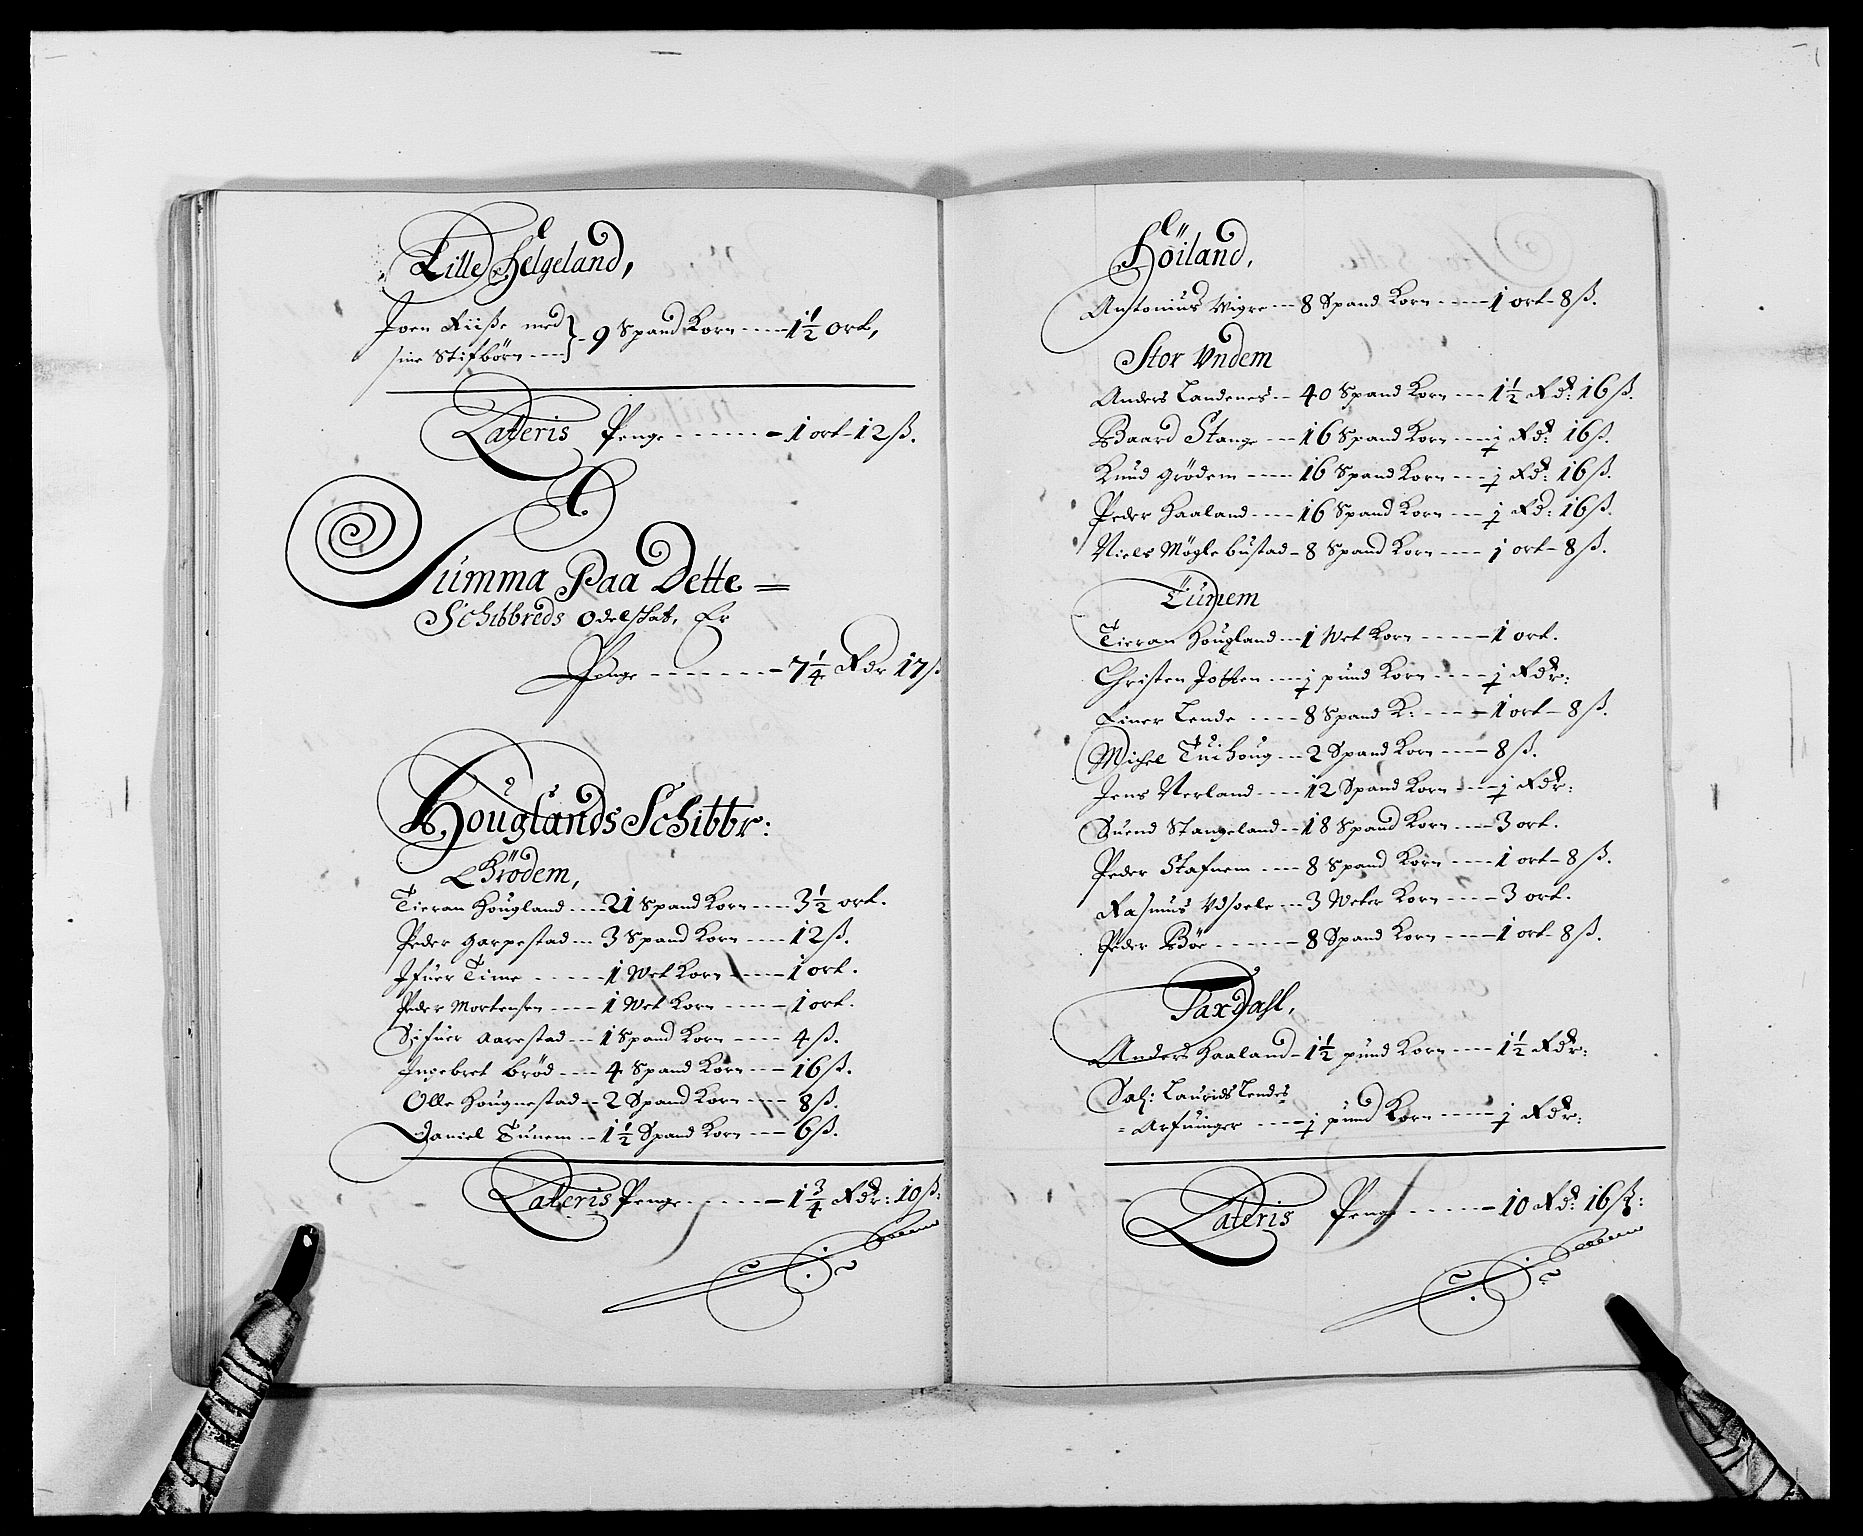 Lille Helgeland,
Joen Riiße med
sine Stifbørn --- 9 Spand Korn ---- 1½ ort,
Lateris Penge ------- 1 ort - 12 ß.
Summa Paa Dette =
Schibbreds odelskat, Er
Penge ------- 7¼ Rdr 17 ß
Houglands Schibbr:
Grödem,
Tieran Hougland --- 21 Spand Korn ---- 3½ ort.
Peder Garpestad --- 3 Spand Korn ---- 12 ß.
Ifuer Time ----- 1 Wet Korn ---- 1 ort.
Peder Mortensen ---- 1 Wet Korn ---- 1 ort.
Sifuer Aarestad --- 1 Spand Korn ---- 4 ß.
Ingebret Bröd ---- 4 Spand Korn --- 16 ß.
Olle Hougnestad -- 2 Spand Korn --- 8 ß.
Daniel Tunem -- 1½ Spand Korn --- 6 ß.
Lateris Penge ------ 1¾ Rdr: 10 ß:
Höiland,
Antonius Vigre --- 8 Spand Korn ---- 1 ort - 8 ß.
Stor Vndem
Anders Landenes -- 40 Spand Korn --- 1½ Rd: 16 ß.
Baard Stange --- 16 Spand Korn --- ½ Rd: 16 ß.
Knud Grödem ---- 16 Spand Korn --- ½ Rd: 16 ß.
Peder Haaland ---- 16 Spand Korn --- ½ Rd: 16 ß.
Niels Møglebustad - 8 Spand Korn ---- 1 ort - 8 ß.
Tunem
Tieran Hougland --- 1 Wet Korn ----- 1 ort.
Christen Jotten --- ½ pund Korn ---- ½ Rdr:
Einer Lende ---- 8 Spand K: ----- 1 ort - 8 ß.
Michel Tuihoug --- 2 Spand Korn ---- 8 ß.
Jens Nerland ---- 12 Spand Korn ---- ½ Rdr:
Suend Stangeland -- 18 Spand Korn ---- 3 ort.
Peder Stafnem ---- 8 Spand Korn ---- 1 ort - 8 ß.
Rasmus Vdsoele --- 3 Weter Korn ----- 3 ort.
Peder Böe ------ 8 Spand Korn ----- 1 ort - 8 ß.
Taxdahl,
Anders Haaland - 1½ pund Korn ---- 1½ Rdr:
Sal: Laurids Lendes
= Arfuinger ---- ½ pund Korn ----- ½ Rdr:
Lateris Penge ------ 10 Rd: 16 ß: